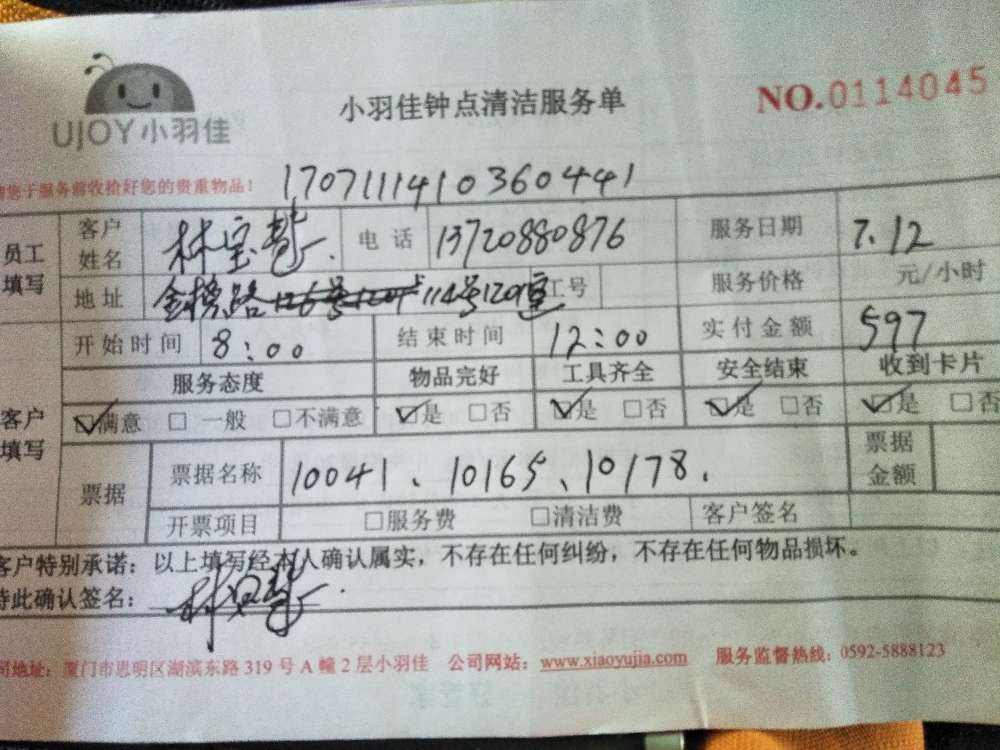 UJOY小羽佳
小羽佳钟点清洁服务单
NO.0114045
您于服务前收拾好您的贵重物品！
1707111410360441
员工填写 客户姓名 林宝 电话 13720880876 服务日期 7.12
地址 金榜路 114号1209室 工号 服务价格 元/小时
客户填写 开始时间 8:00 结束时间 12:00 实付金额 597
服务态度 物品完好 工具齐全 安全结束 收到卡片
☑满意 □一般 □不满意 ☑是 □否 ☑是 □否 ☑是 □否 ☑是 □否
票据 票据名称 10041、10165、10178. 票据金额
开票项目 □服务费 □清洁费 客户签名
客户特别承诺：以上填写经本人确认属实，不存在任何纠纷，不存在任何物品损坏。
特此确认签名：
司地址：厦门市思明区湖滨东路319号A幢2层小羽佳 公司网站：www.xiaoyujia.com 服务监督热线：0592-5888123